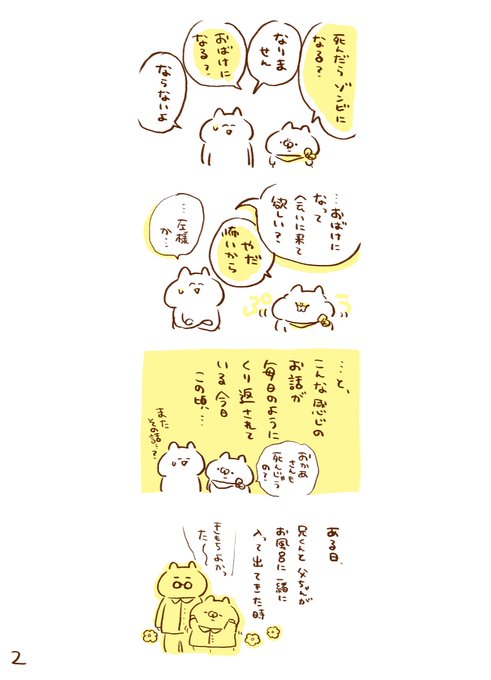 死んだら ゾンビに
なる?
なりま
せん
おばけに
なる?
ならないよ
…おばけに
なって
会いに来て
欲しい?
やだ
怖いから
…左様
か…
プ
ぅ
…と、
こんな感じの
お話が
毎日のように
くり返されて
いる今日
この頃…
おかあ
さんも
死んじゃう
の?
また
その話っ?
ある日、
兄くんと父ちゃんが
お風呂に一緒に
入って出てきた時
きもちよかっ
た〜
2